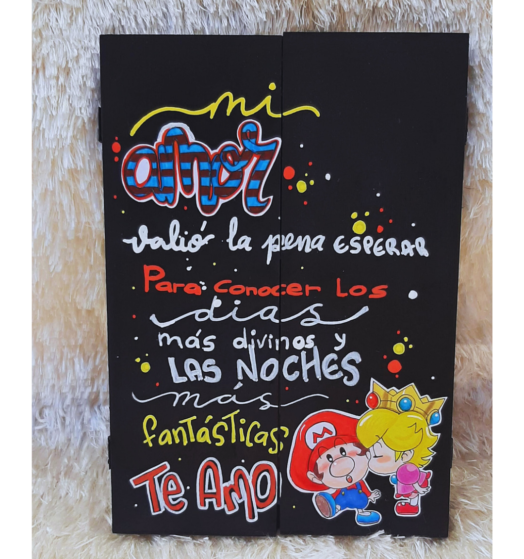 mi
amor
valió la pena ESPERAR
Para conocer Los
días
más divinos y
LAS NOCHES
más
fantásticas
Te Amo
M